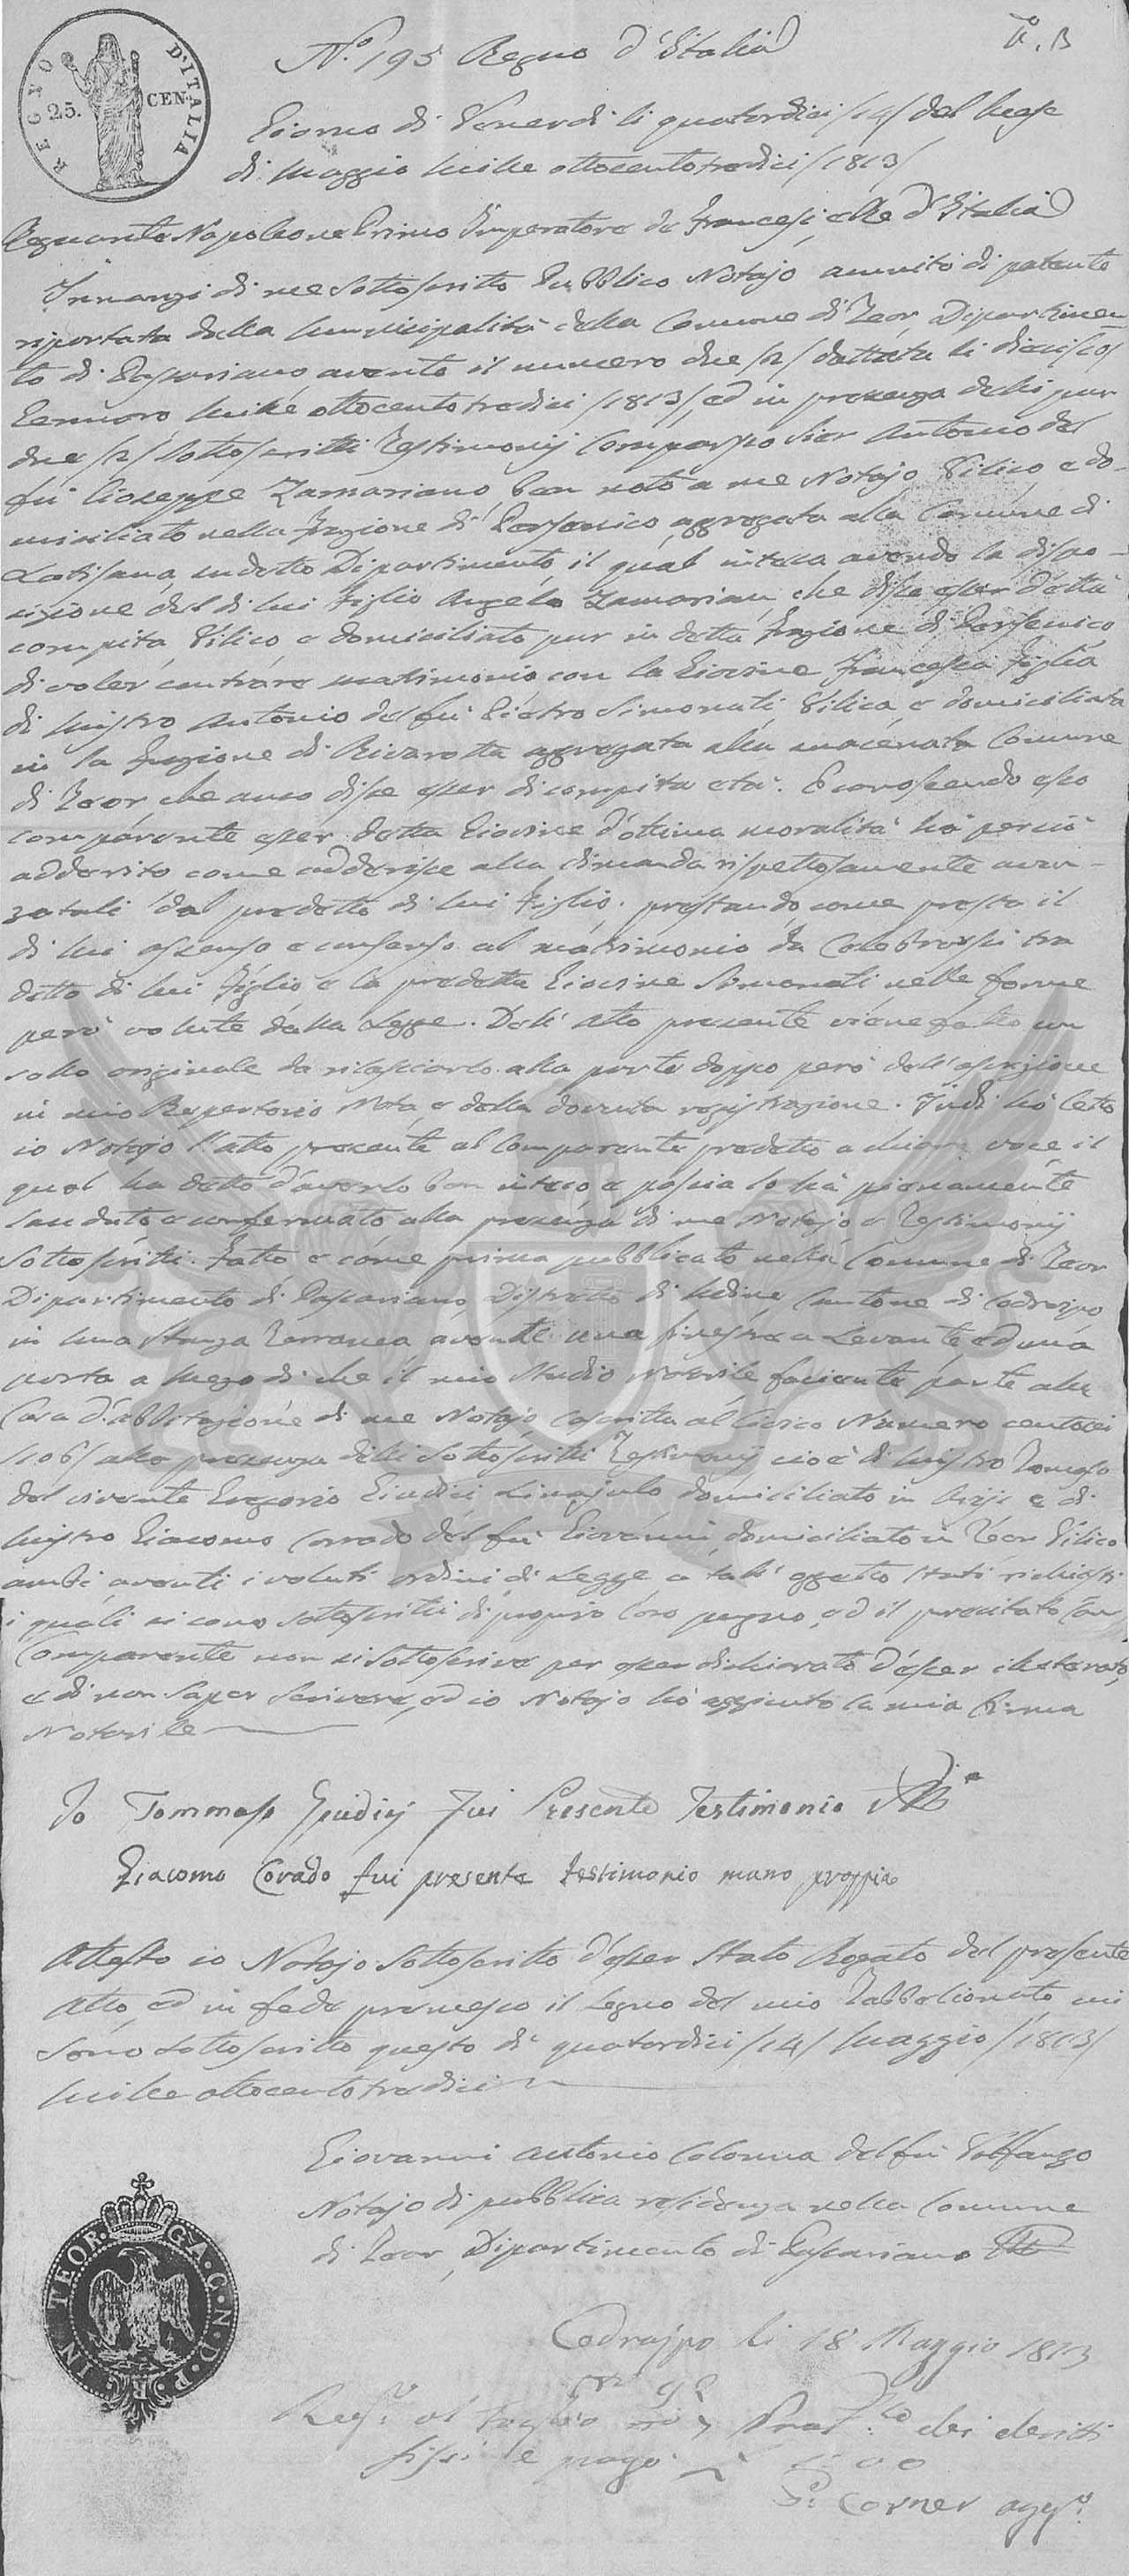 REGNO D'ITALIA
25. CEN.
N.º 195 Regno d'Italia
Giorno di Venerdì li quatordici /14/ del mese
di Maggio mille ottocento tredici /1813/
Regnante Napoleone Primo Imperatore de Francesi, e Re d'Italia
Innanzi di me sottoscritto Pubblico Notajo munito di patente
riportata dalla Municipalità della Comune di Teor, Dipartimen-
to di Passariano avente il numero due /2/ dattata li dieciotto
Gennaro mille ottocento tredici /1813/, ed in presenza delli pur
due /2/ sottoscritti Testimonij comparso Sier Antonio del
fu Gioseppe Zamariano, ben noto a me Notajo, Vilico, e do-
miciliato nella frazione di Persenico, aggregata alla Comune di
Latisana, in detto Dipartimento, il qual intesa avendo la dispo-
sizione del di lui Figlio Angelo Zamarian, che disse esser d'ettà
compita, Vilico, e domiciliato pur in detta frazione di Persenico,
di voler contrare matrimonio con la Giovine Francesca Figlia
di Mistro Antonio del fu Pietro Simonati, Vilica, e domiciliata
in la frazione di Rivarotta aggregata alla Comune
di Teor che anco disse esser di compita età. E conoscendo esso
comparente esser detta Giovine d'ottima moralità hà perciò
adderito come adderisce alla dimanda rispettosamente avan-
zatali dal predetto di lui Figlio, prestando come presta il
di lui assenso e consenso al matrimonio da Celebrarsi tra
detto di lui Figlio e la predetta Giovine Simonati nelle forme
però volute dalla Legge. Dell'Atto presente viene fatto un
sollo originale da rilasciarlo alla parte doppo però dell'
in mio Repertorio Nota, e della dovuta registrazione. Indi hò letto
io Notajo l'atto presente al Comparente predetto a chiara voce il
qual ha detto d'averlo ben inteso e poscia lo hà pienamente
laudato e confermato alla presenza di me Notajo e Testimonij
sottoscritti. Fatto e come prima pubblicato nella Comune di Teor
Dipartimento di Passariano, Distretto di Udine, Cantone di Codroipo
in una Stanza Terranea avente una finestra a Levante, ed una
porta a mezo dì che il mio Studio Notarile faciente parte alla
Casa d'abbitazione di me Notajo, coscritta al Civico Numero centosei
/106/ alla presenza delli sottoscritti Testimonij cioè di Mistro Tomaso
del vivente Gregorio Giudici domiciliato in e di
Mistro Giacomo Corado del fu Giovanni, domiciliato in Teor Vilico
ambi aventi i voluti ordini di Legge a tall' oggetto stati richiesti
i quali si sono sottoscritti di proprio loro pugno, ed il precitato
Comparente non si sottoscrive per esser dichiarato d'esser illeterato,
e di non saper scrivere, ed io Notajo hò aggiunto la mia Firma
Notarile
Io Tommaso Giudici Fui Presente Testimonio
Giacomo Corado fui presente testimonio mano proppia
Attesto io Notajo sottoscritto d'esser stato Rogato del presente
Atto, ed in fede premesso il Segno del mio Tabbelionato, mi
sono sottoscritto questo dì quatordici /14/ Maggio /1813/
mille ottocento tredici
Giovanni Antonio Colonna del fu Volfango
Notajo di pubblica residenza nella Comune
di Teor, Dipartimento di Passariano
IN TEOR. G. A. C. N. D. P. R.
Codroipo li 18 Maggio 1813
Reg.º al foglio dei diritti
fissi e pagò
Corner agg.º